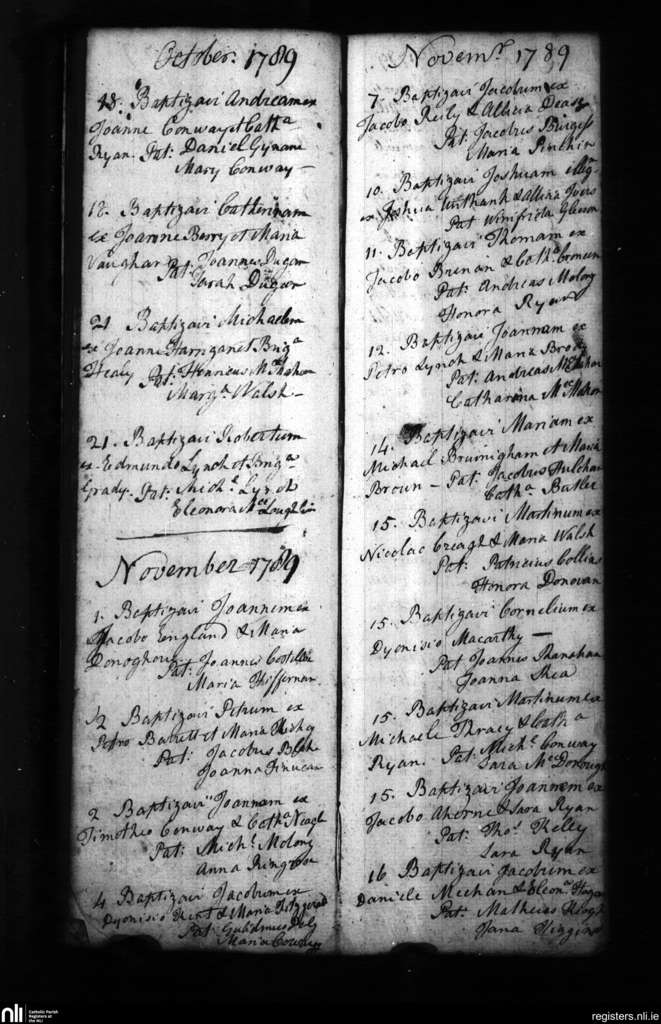 October. 1789
18. Baptizavi Andream ex
Joanne Conway et Cath.a
Ryan. Pat: Daniel Gynane
Mary Conway —
18. Baptizavi Catherinam
ex Joanne Berry et Maria
Vaughan Pat: Joannes Dugan
Sarah Dugan
21 Baptizavi Michaelem
ex Joanne Harrigan et Brig.a
Healy Pat: Henricus McMahon
Marg.a Walsh —
21. Baptizavi Robertum
ex Edmundo Lynch et Brig.a
Grady. Pat: Mich.l Lynch
Eleonora McLoughlin
November 1789
1. Baptizavi Joannem ex
Jacobo England & Maria
Donoghou Pat: Joannes Costelloe
Maria Hiffernan
2 Baptizavi Petrum ex
Petro Barrett et Maria Hickey
Pat: Jacobus
Joanna Finucan
2 Baptizavi Joannem ex
Timotheo Conway & Cath.a Neagle
Pat: Mich.l Molony
Anna Ringrose
4 Baptizavi Jacobum ex
Dyonisio & Maria Fitzgerald
Pat: Gulielmus Daly
Maria
Novem.r 1789
7 Baptizavi Jacobum ex
Jacobo Reily & Allicia Deasy
Pat Jacobus Burgess
Maria Pinchin
10. Baptizavi Joshuam illeg.m
ex Joshua & Allicia Ivers
Pat Winifrida Gleeson
11. Baptizavi Thomam ex
Jacobo Brinan & Cath.a
Pat: Andreas Molony
Honora Ryan
12. Baptizavi Joannam ex
Petro Lynch & Maria Brody
Pat: Andreas McMahon
Catharina McMahon
14. Baptizavi Mariam ex
Michael Brumigham et Maria
Broun — Pat: Jacobus Hulehan
Cath.a Butler
15. Baptizavi Martinum ex
Nicolao Creagh & Maria Walsh
Pat: Patricius Collins
Honora Donovan
15. Baptizavi Cornelium ex
Dyonisio Macarthy —
Pat Joannes Ranahan
Joanna Shea
15. Baptizavi Martinum ex
Michaele Thracy & Cath.a
Ryan. Pat: Mich.l Conway
Sara McDonough
15. Baptizavi Joannem ex
Jacobo Aherne & Sara Ryan
Pat: Tho.s Kelly
Sara Ryan
16 Baptizavi Jacobum ex
Daniele Meehan & Eleon.a Hogan
Pat: Matheus Keogh
Jana Higgins
nli Catholic Parish
Registers at
the NLI
registers.nli.ie